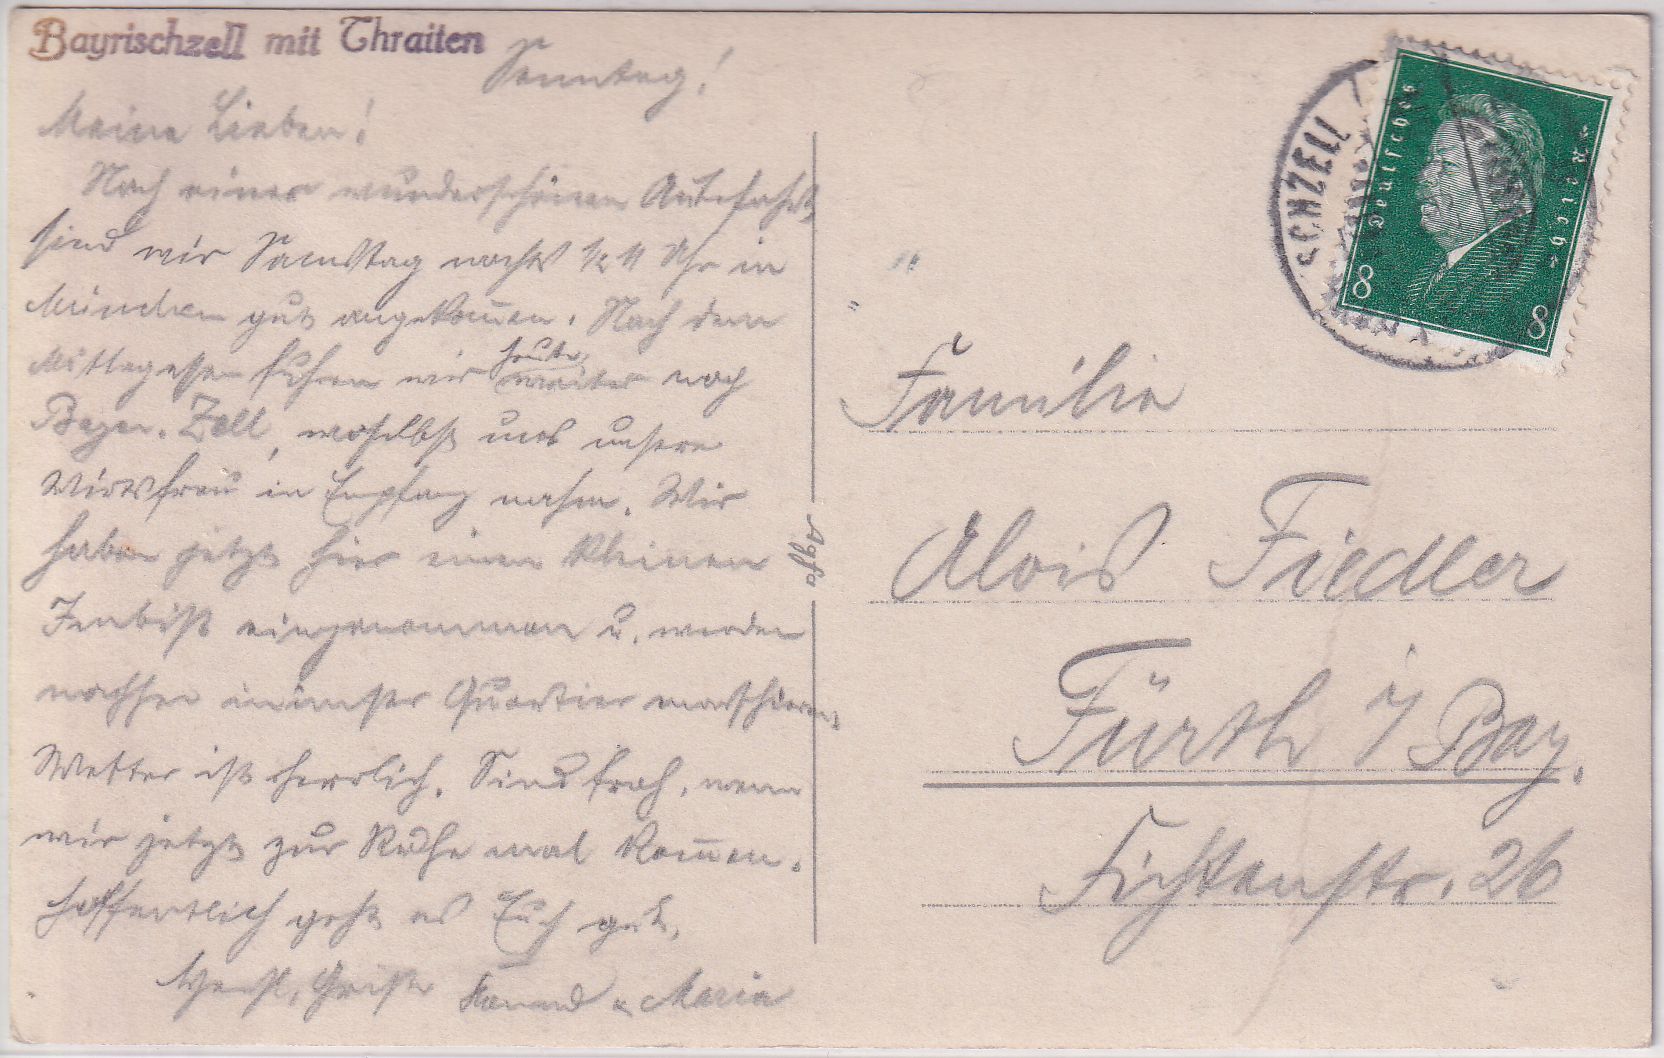 Bayrischzell mit Thraiten
Sonntag!
Meine Lieben!
Nach einer wunderschönen Autofahrt
sind wir Samstag nachts ½ 11 Uhr in
München gut angekom̅en. Nach dem
Mittagessen fuhren wir heute weiter nach
Bayer. Zell, woselbst uns unsere
Wirtsfrau in Empfang nahm. Wir
haben jetzt hier einen kleinen
Imbiß eingenommen u. werden
nachher in unser Quartier marschieren.
Wetter ist herrlich. Sind froh, wenn
wir jetzt zur Ruhe mal kom̅en.
Hoffentlich geht es Euch gut.
Herzl. Grüße Konrad u. Maria
Agfa
SCHZELL
Deutsches Reich
8 8
Familie
Alois Fiedler
Fürth i/ Bay.
Fichtenstr. 26